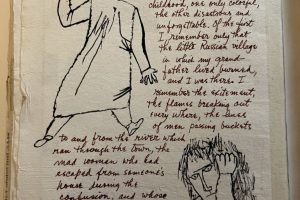 childhood, one only colorful,
the other disastrous and
unforgettable. Of the first
I remember only that
the little Russian village
in which my grand-
father lived burned,
and I was there. I
remember the excitement,
the flames breaking out
everywhere, the lines
of men passing buckets
to and from the river which
ran through the town, the
mad woman who had
escaped from someone's
house during the
confusion, and whose